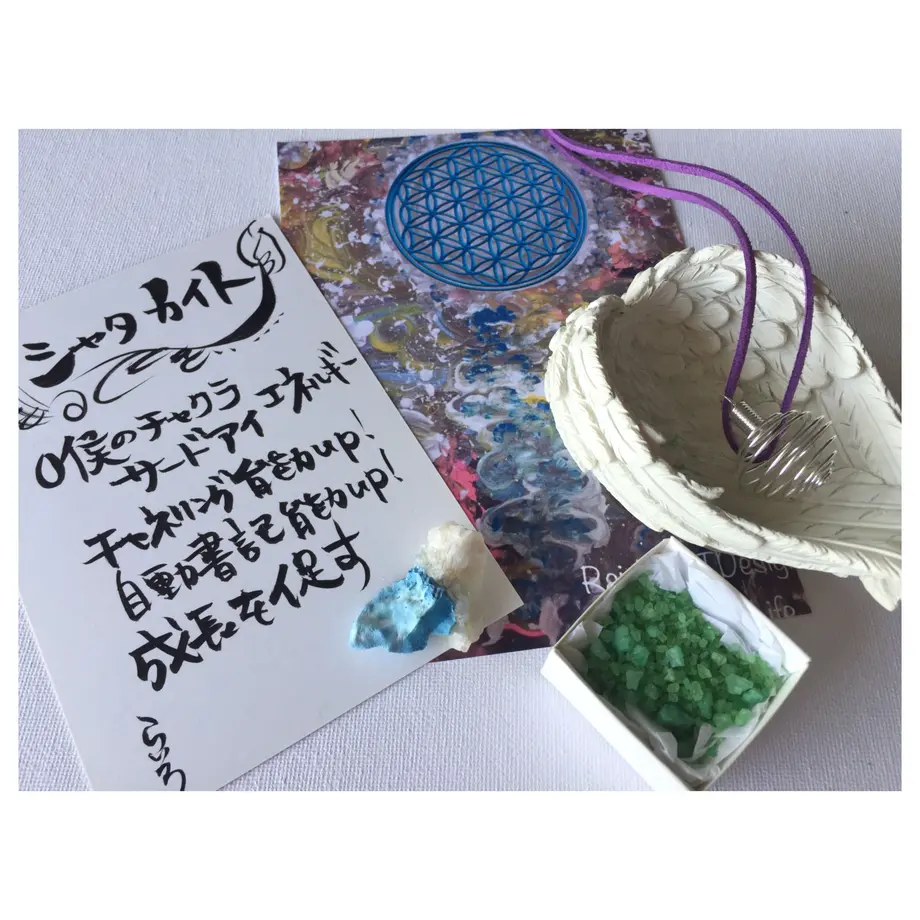 シャタカイト
僕のチャクラ
サードアイエネルギー
チャネリング能力up!
自動書記能力up!
成長を促す
らいろ
Design